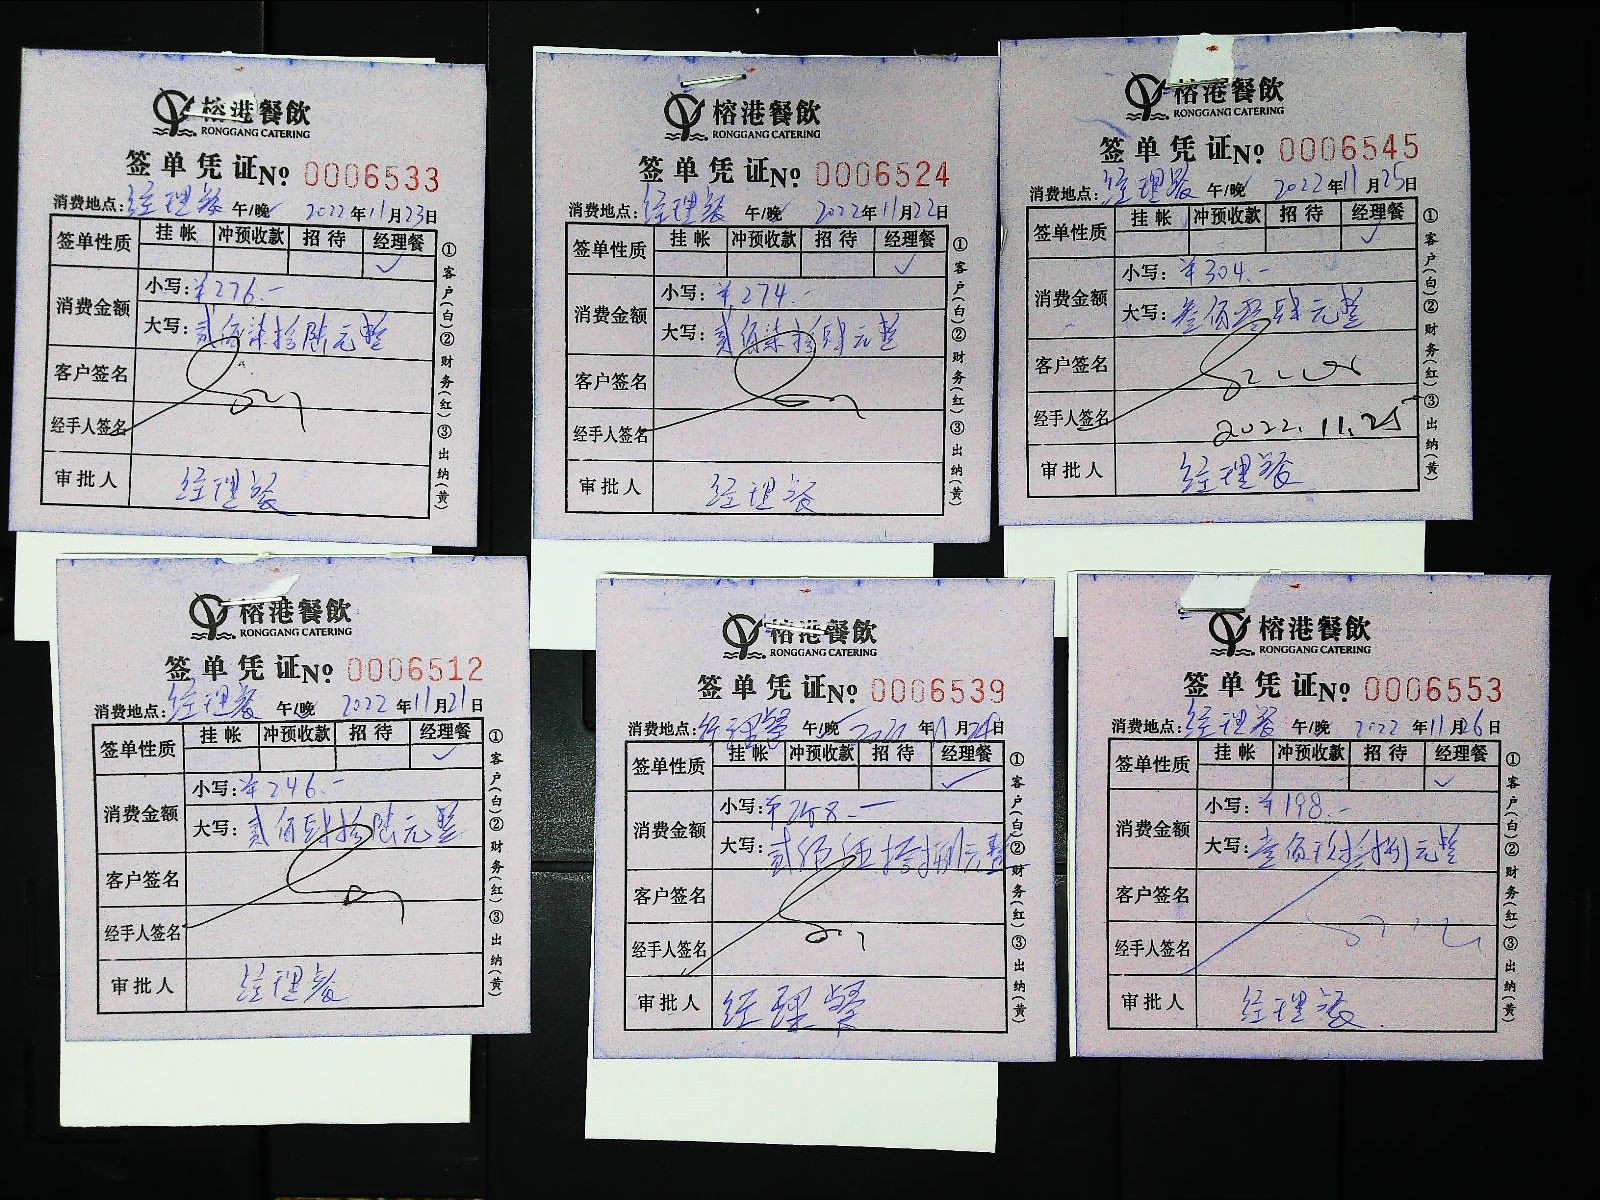 榕港餐飲
RONGGANG CATERING
签单凭证No 0006533
消费地点:经理餐 午/晚 2022年11月23日
签单性质 挂帐 冲预收款 招待 经理餐
✓
消费金额 小写:¥276.-
大写:贰佰柒拾陆元整
客户签名
经手人签名
审批人 经理餐
①客户(白)②财务(红)③出纳(黄)
榕港餐飲
RONGGANG CATERING
签单凭证No 0006524
消费地点:经理餐 午/晚 2022年11月22日
签单性质 挂帐 冲预收款 招待 经理餐
✓
消费金额 小写:¥274.-
大写:贰佰柒拾肆元整
客户签名
经手人签名
审批人 经理餐
①客户(白)②财务(红)③出纳(黄)
榕港餐飲
RONGGANG CATERING
签单凭证No 0006545
消费地点:经理餐 午/晚 2022年11月25日
签单性质 挂帐 冲预收款 招待 经理餐
✓
消费金额 小写:¥304.-
大写:叁佰零肆元整
客户签名
经手人签名 2022.11.25
审批人 经理餐
①客户(白)②财务(红)③出纳(黄)
榕港餐飲
RONGGANG CATERING
签单凭证No 0006512
消费地点:经理餐 午/晚 2022年11月21日
签单性质 挂帐 冲预收款 招待 经理餐
✓
消费金额 小写:¥246.-
大写:贰佰肆拾陆元整
客户签名
经手人签名
审批人 经理餐
①客户(白)②财务(红)③出纳(黄)
榕港餐飲
RONGGANG CATERING
签单凭证No 0006539
消费地点:经理餐 午/晚 2022年11月24日
签单性质 挂帐 冲预收款 招待 经理餐
✓
消费金额 小写:¥258.-
大写:贰佰伍拾捌元整
客户签名
经手人签名
审批人 经理餐
①客户(白)②财务(红)③出纳(黄)
榕港餐飲
RONGGANG CATERING
签单凭证No 0006553
消费地点:经理餐 午/晚 2022年11月26日
签单性质 挂帐 冲预收款 招待 经理餐
✓
消费金额 小写:¥198.-
大写:壹佰玖拾捌元整
客户签名
经手人签名
审批人 经理餐
①客户(白)②财务(红)③出纳(黄)